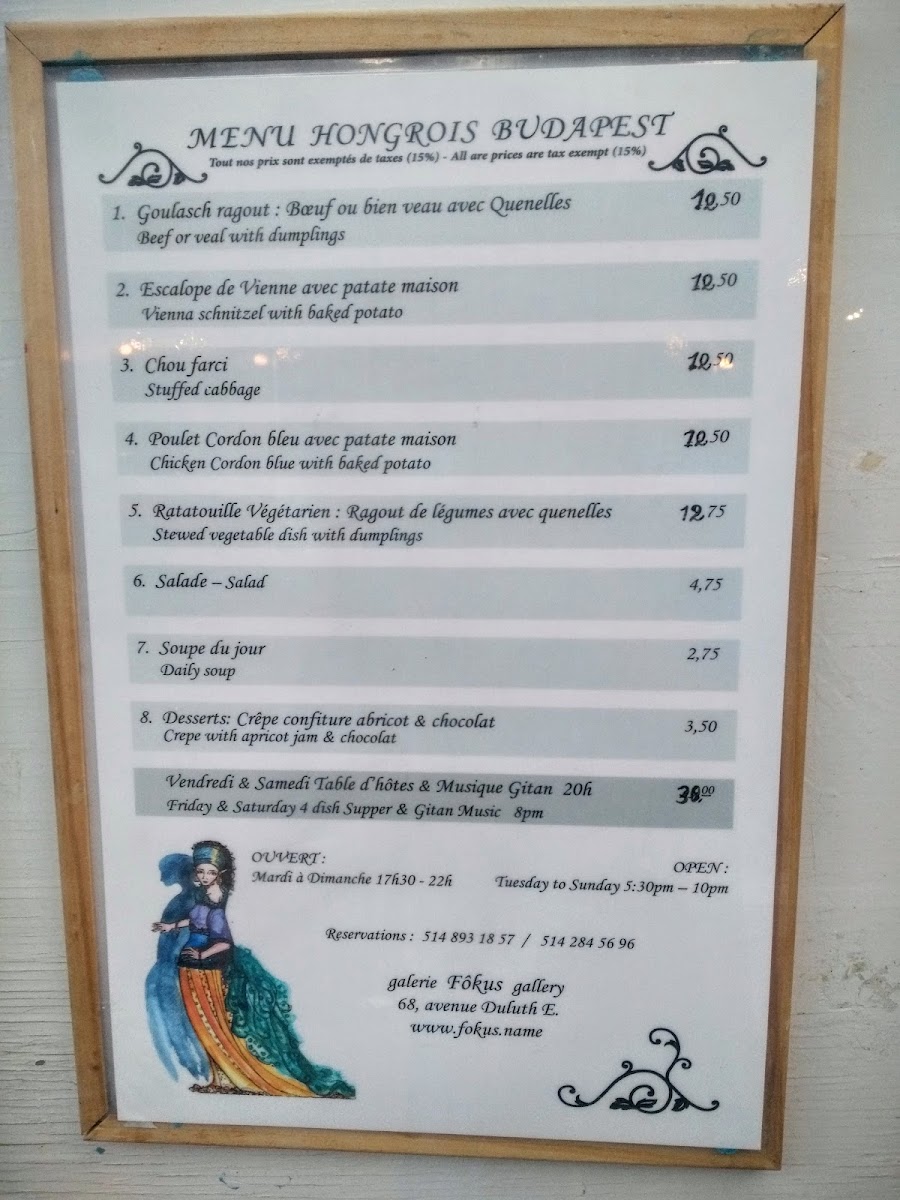 MENU HONGROIS BUDAPEST
Tout nos prix sont exemptés de taxes (15%) - All are prices are tax exempt (15%)
1. Goulasch ragout : Bœuf ou bien veau avec Quenelles 12,50
Beef or veal with dumplings
2. Escalope de Vienne avec patate maison 12,50
Vienna schnitzel with baked potato
3. Chou farci 12,50
Stuffed cabbage
4. Poulet Cordon bleu avec patate maison 12,50
Chicken Cordon blue with baked potato
5. Ratatouille Végétarien : Ragout de légumes avec quenelles 12,75
Stewed vegetable dish with dumplings
6. Salade – Salad 4,75
7. Soupe du jour 2,75
Daily soup
8. Desserts: Crêpe confiture abricot & chocolat 3,50
Crepe with apricot jam & chocolat
Vendredi & Samedi Table d'hôtes & Musique Gitan 20h
Friday & Saturday 4 dish Supper & Gitan Music 8pm
OUVERT :
Mardi à Dimanche 17h30 - 22h
OPEN :
Tuesday to Sunday 5:30pm – 10pm
Reservations : 514 893 18 57 / 514 284 56 96
galerie Fôkus gallery
68, avenue Duluth E.
www.fokus.name